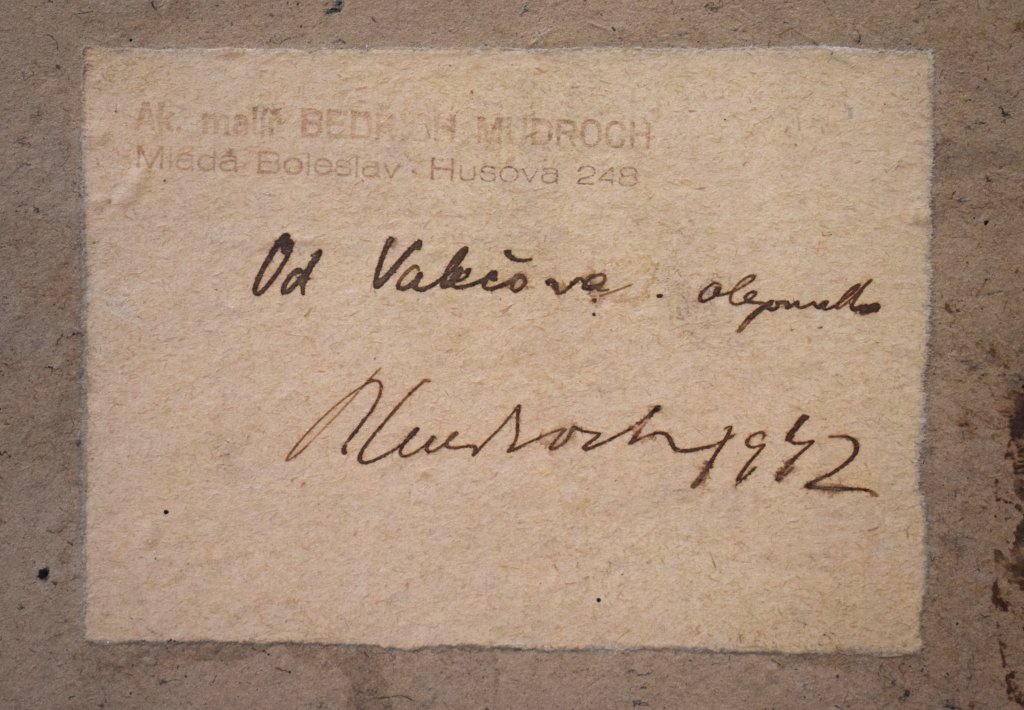 Ak. malíř BEDŘICH MUDROCH
Mladá Boleslav · Husova 248
Od Valečova.
Mudroch 1942